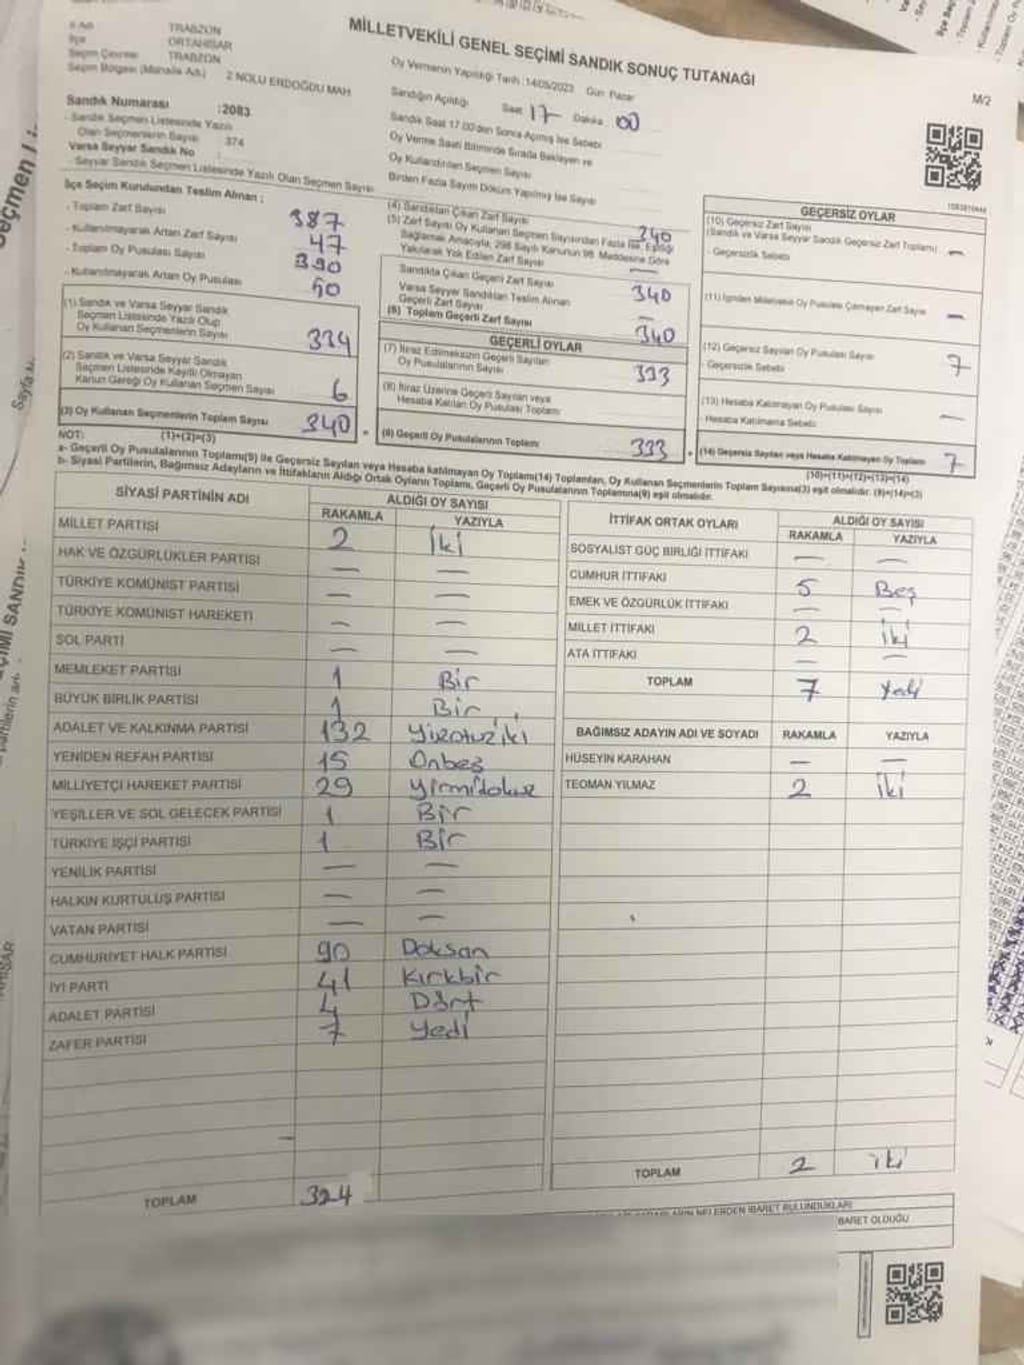 MİLLETVEKİLİ GENEL SEÇİMİ SANDIK SONUÇ TUTANAĞI
M/2
TRABZON
İlçe ORTAHİSAR
Seçim Çevresi TRABZON
Seçim Bölgesi (Mahalle Adı) 2 NOLU ERDOĞDU MAH
Sandık Numarası :2083
- Sandık Seçmen Listesinde Yazılı
Olan Seçmenlerin Sayısı 374
Varsa Seyyar Sandık No :
- Seyyar Sandık Seçmen Listesinde Yazılı Olan Seçmen Sayısı
Oy Vermenin Yapıldığı Tarih :14/05/2023 Gün Pazar
Sandığın Açıldığı Saat 17 Dakika 00
Sandık Saat 17.00'den Sonra Açılmış İse Sebebi
Oy Verme Saati Bitiminde Sırada Bekleyen ve
Oy Kullandırılan Seçmen Sayısı
Birden Fazla Sayım Döküm Yapılmış İse Sayısı
İlçe Seçim Kurulundan Teslim Alınan :
- Toplam Zarf Sayısı 387
- Kullanılmayarak Artan Zarf Sayısı 47
- Toplam Oy Pusulası Sayısı 390
- Kullanılmayarak Artan Oy Pusulası 50
(1) Sandık ve Varsa Seyyar Sandık
Seçmen Listesinde Yazılı Olup
Oy Kullanan Seçmenlerin Sayısı 334
(2) Sandık ve Varsa Seyyar Sandık
Seçmen Listesinde Kayıtlı Olmayan
Kanun Gereği Oy Kullanan Seçmen Sayısı 6
(3) Oy Kullanan Seçmenlerin Toplam Sayısı 340
(1)+(2)=(3)
(4) Sandıktan Çıkan Zarf Sayısı 340
(5) Zarf Sayısı Oy Kullanan Seçmen Sayısından Fazla İse, Eşitliği
Sağlamak Amacıyla, 298 Sayılı Kanunun 98. Maddesine Göre
Yakılarak Yok Edilen Zarf Sayısı —
Sandıkta Çıkan Geçerli Zarf Sayısı 340
Varsa Seyyar Sandıktan Teslim Alınan
Geçerli Zarf Sayısı —
(6) Toplam Geçerli Zarf Sayısı 340
GEÇERLİ OYLAR
(7) İtiraz Edilmeksizin Geçerli Sayılan
Oy Pusulalarının Sayısı 333
(8) İtiraz Üzerine Geçerli Sayılan veya
Hesaba Katılan Oy Pusulası Toplamı
(9) Geçerli Oy Pusulalarının Toplamı 333
GEÇERSİZ OYLAR
(10) Geçersiz Zarf Sayısı
(Sandık ve Varsa Seyyar Sandık Geçersiz Zarf Toplamı) —
- Geçersizlik Sebebi
(11) İçinden Milletvekili Oy Pusulası Çıkmayan Zarf Sayısı —
(12) Geçersiz Sayılan Oy Pusulası Sayısı 7
- Geçersizlik Sebebi
(13) Hesaba Katılmayan Oy Pusulası Sayısı —
- Hesaba Katılmama Sebebi
(14) Geçersiz Sayılan veya Hesaba Katılmayan Oy Toplamı 7
(10)+(11)+(12)+(13)=(14)
NOT:
a- Geçerli Oy Pusulalarının Toplamı(9) ile Geçersiz Sayılan veya Hesaba katılmayan Oy Toplamı(14) Toplamları, Oy Kullanan Seçmenlerin Toplam Sayısına(3) eşit olmalıdır. (9)+(14)=(3)
b- Siyasi Partilerin, Bağımsız Adayların ve İttifakların Aldığı Ortak Oyların Toplamı, Geçerli Oy Pusulalarının Toplamına(9) eşit olmalıdır.
SİYASİ PARTİNİN ADI ALDIĞI OY SAYISI
RAKAMLA YAZIYLA
MİLLET PARTİSİ 2 İki
HAK VE ÖZGÜRLÜKLER PARTİSİ — —
TÜRKİYE KOMÜNİST PARTİSİ — —
TÜRKİYE KOMÜNİST HAREKETİ — —
SOL PARTİ — —
MEMLEKET PARTİSİ 1 Bir
BÜYÜK BİRLİK PARTİSİ 1 Bir
ADALET VE KALKINMA PARTİSİ 132 Yüzotuziki
YENİDEN REFAH PARTİSİ 15 Onbeş
MİLLİYETÇİ HAREKET PARTİSİ 29 yirmidokuz
YEŞİLLER VE SOL GELECEK PARTİSİ 1 Bir
TÜRKİYE İŞÇİ PARTİSİ 1 Bir
YENİLİK PARTİSİ — —
HALKIN KURTULUŞ PARTİSİ — —
VATAN PARTİSİ — —
CUMHURİYET HALK PARTİSİ 90 Doksan
İYİ PARTİ 41 Kırkbir
ADALET PARTİSİ 4 Dört
ZAFER PARTİSİ 7 Yedi
TOPLAM 324
İTTİFAK ORTAK OYLARI ALDIĞI OY SAYISI
RAKAMLA YAZIYLA
SOSYALİST GÜÇ BİRLİĞİ İTTİFAKI — —
CUMHUR İTTİFAKI 5 Beş
EMEK VE ÖZGÜRLÜK İTTİFAKI — —
MİLLET İTTİFAKI 2 İki
ATA İTTİFAKI — —
TOPLAM 7 Yedi
BAĞIMSIZ ADAYIN ADI VE SOYADI RAKAMLA YAZIYLA
HÜSEYİN KARAHAN — —
TEOMAN YILMAZ 2 İki
TOPLAM 2 iki
NELERDEN İBARET BULUNDUKLARI
İBARET OLDUĞU